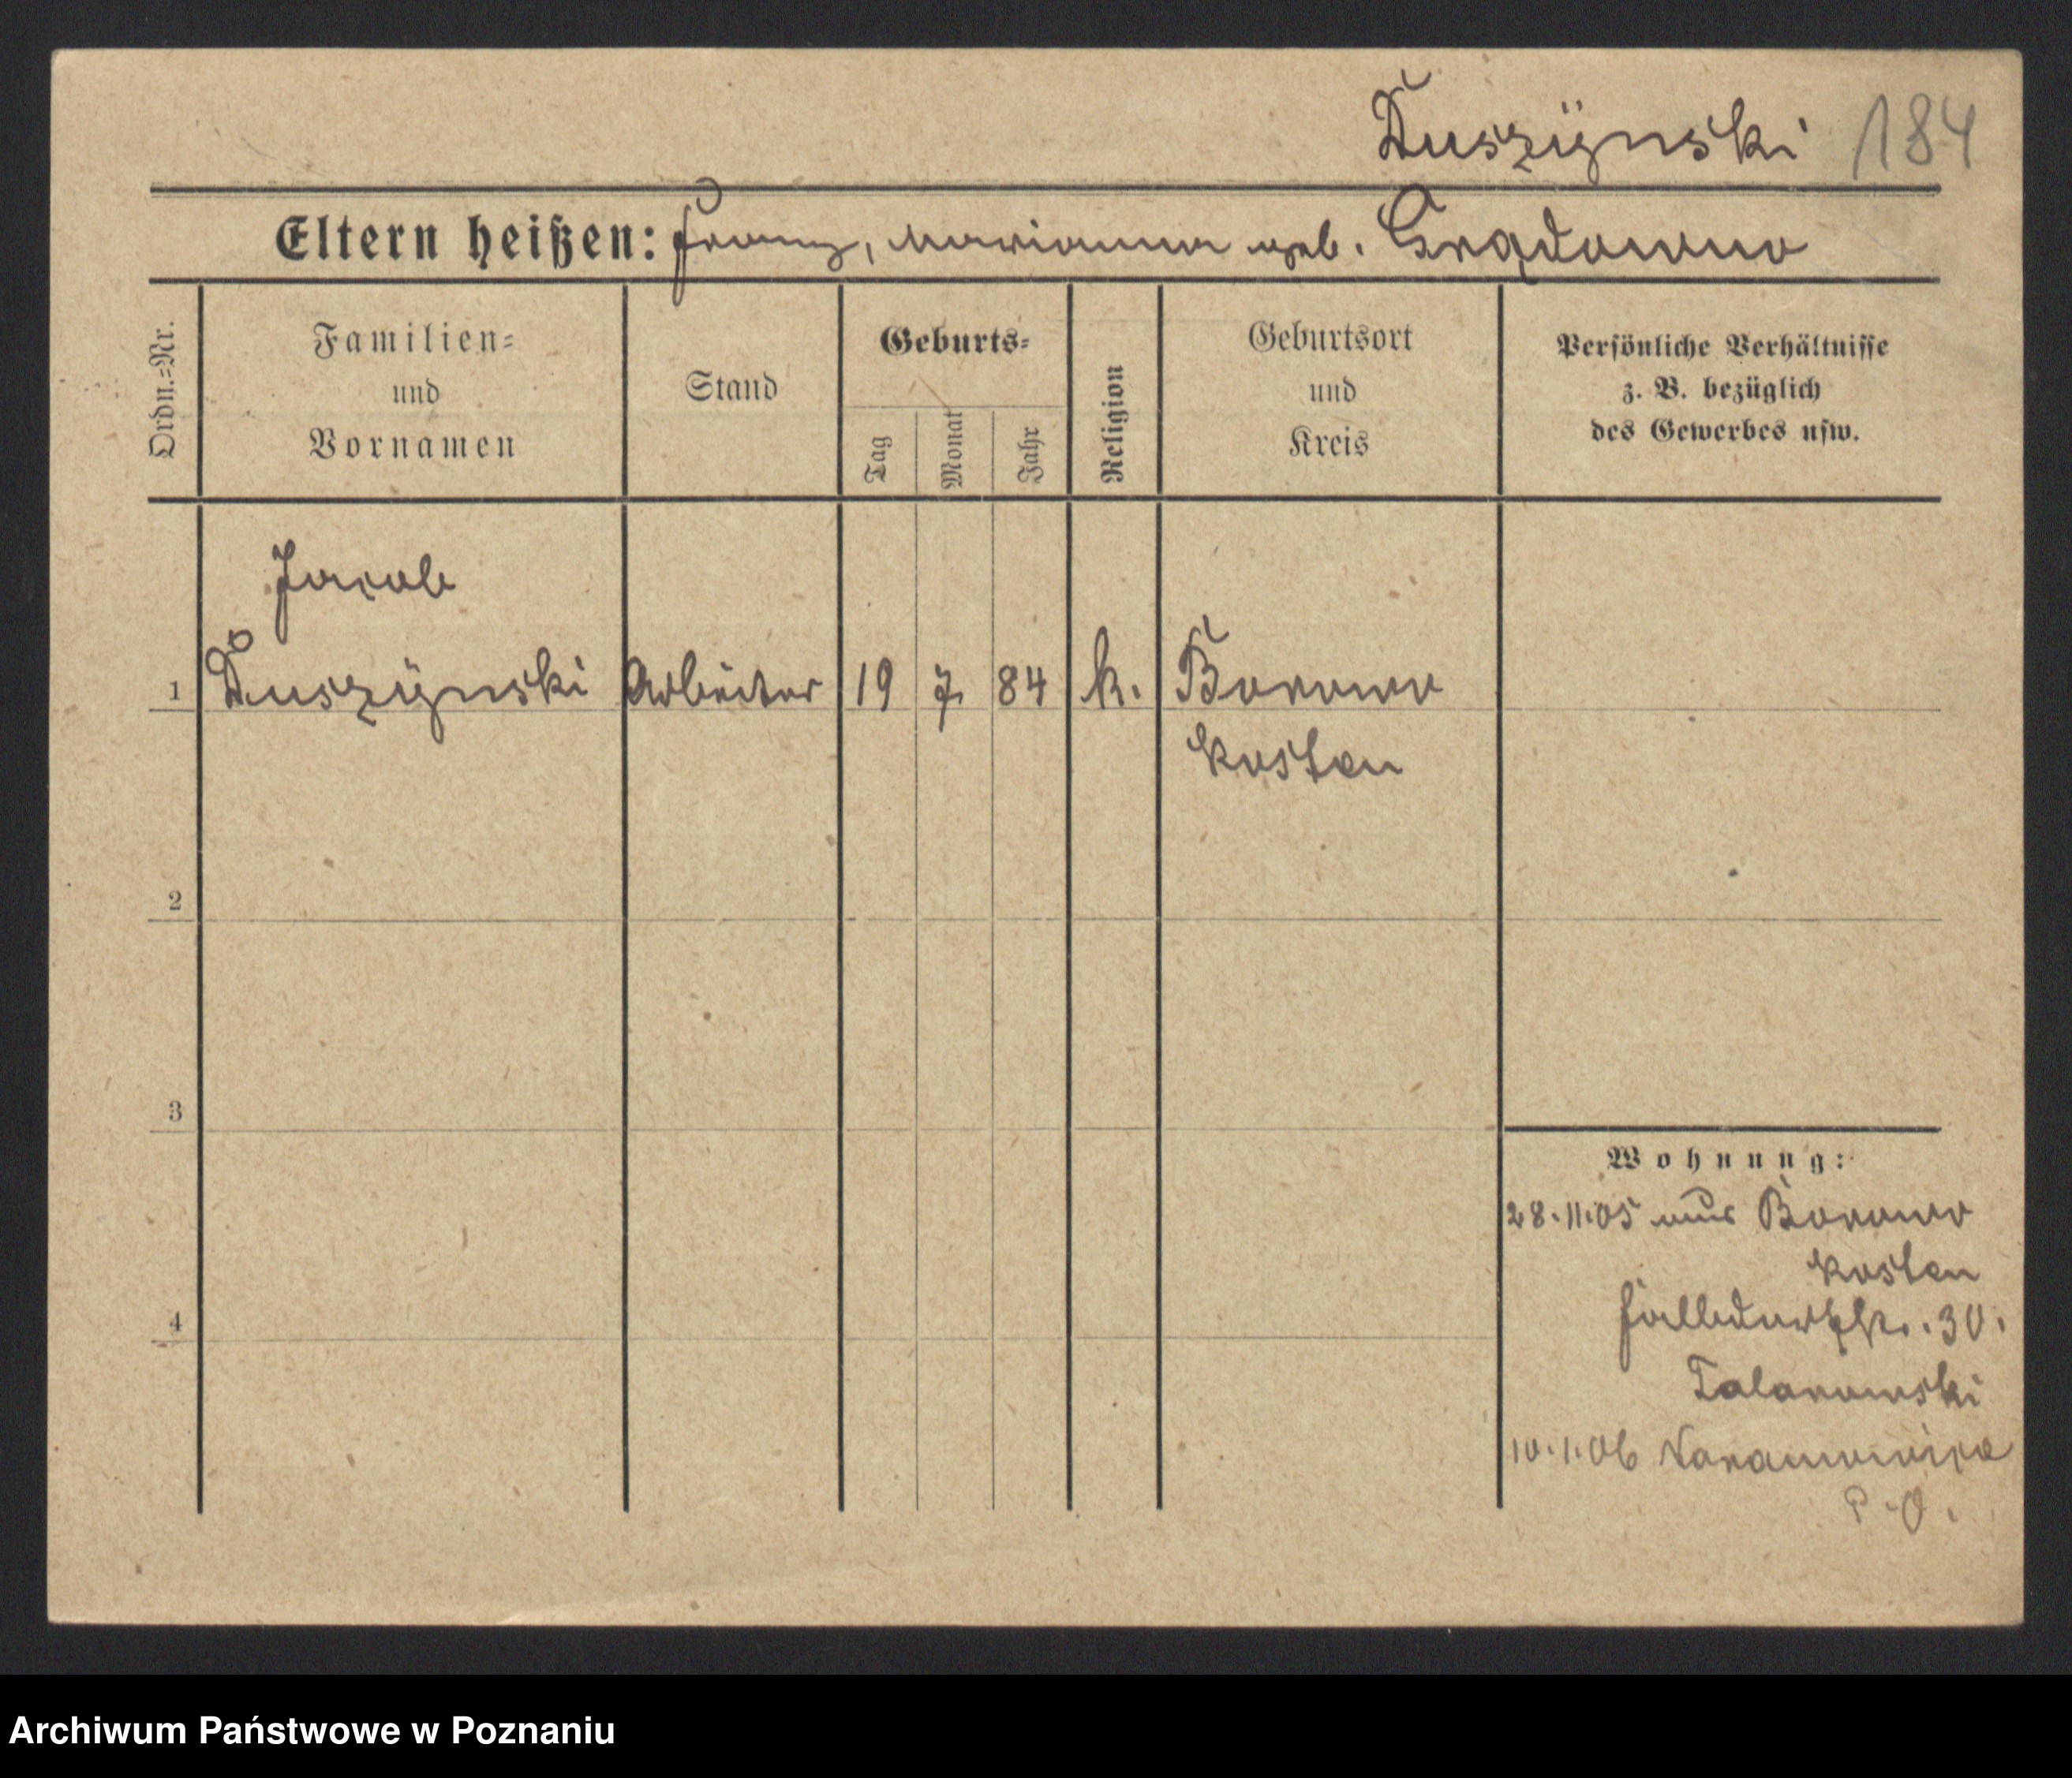 Duszÿnski 184
Eltern heißen: Franz, Marianna geb. Grądowna
Ordn.=Nr.
Familien=
und
Vornamen
Stand
Geburts=
Tag
Monat
Jahr
Religion
Geburtsort
und
Kreis
Persönliche Verhältnisse
z. B. bezüglich
des Gewerbes usw.
Jacob
1 Duszÿnski Arbeiter 19 7. 84 k. Borowo
Kosten
2
3
Wohnung:
28.11.05 aus Borowo
Kosten
4
30.
10.1.06
P.O.
Archiwum Państwowe w Poznaniu